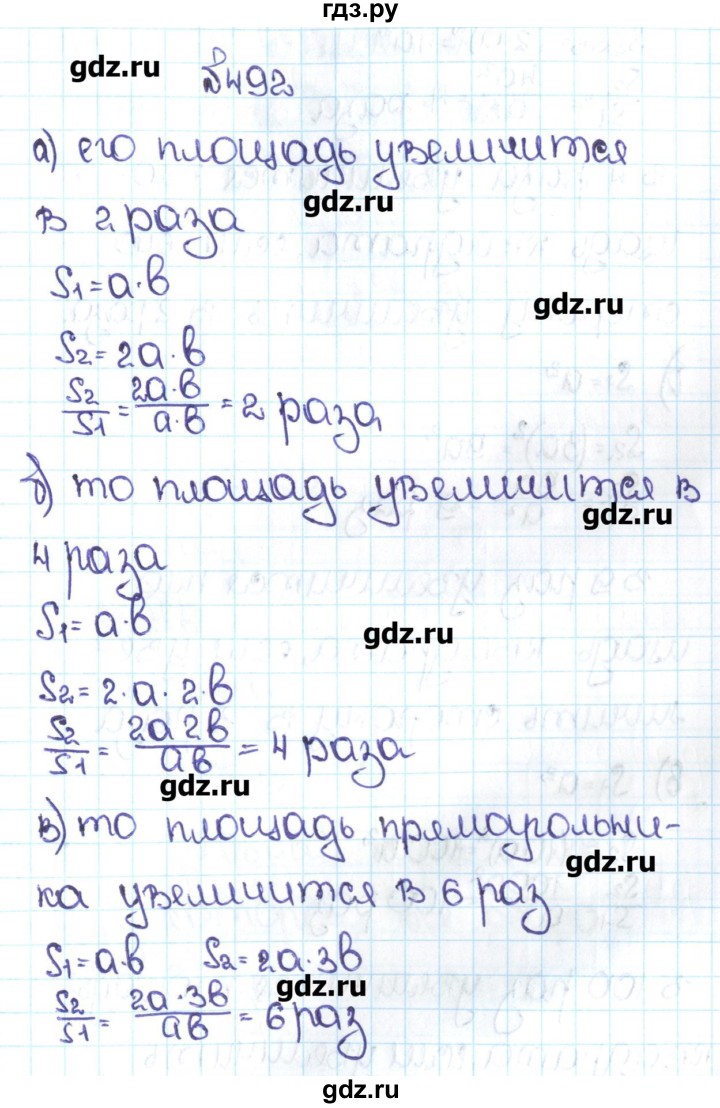 гдз.ру
gdz.ru
№492
а) его площадь увеличится
gdz.ru
в 2 раза
S1=a·в
gdz.ru
S2=2a·в
S2/S1=2a·в/a·в=2 раза
б) то площадь увеличится в
gdz.ru
4 раза
S1=a·в
gdz.ru
S2=2·a·2·в
S2/S1=2a2в/aв=4 раза
gdz.ru
в) то площадь прямоугольни-
gdz.ru
ка увеличится в 6 раз
S1=a·в S2=2a·3в
gdz.ru
S2/S1=2a·3в/aв=6 раз
gdz.ru